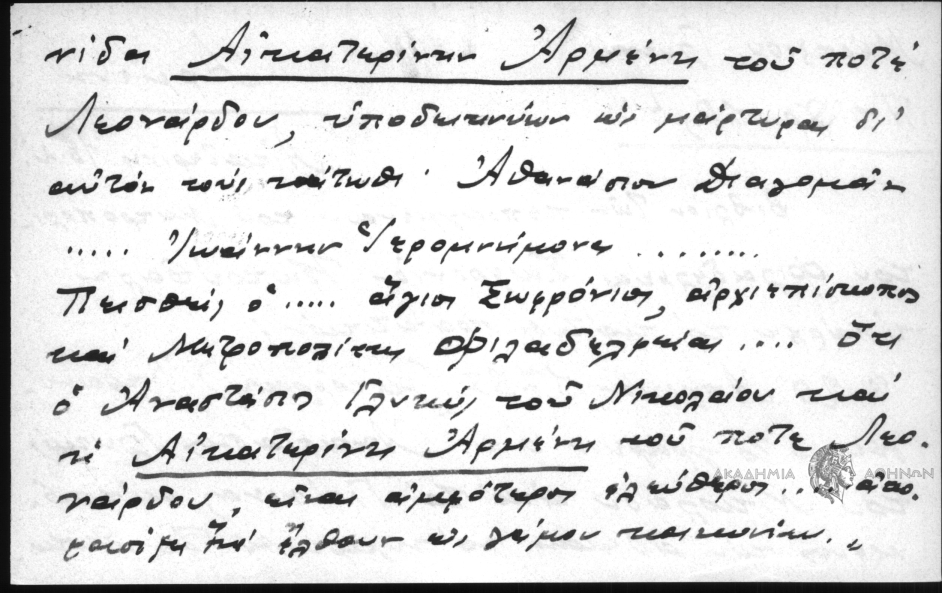 νίδα Αἰκατερίνην Ἀρμένη τοῦ ποτέ
Λεονάρδου, ὑποδεικνύων ὡς μάρτυρας δι'
αὐτόν τούς κάτωθι· Ἀθανάσιον
..... Ἰωάννην Ἱερομνήμονα ........
Πεισθείς ὁ ..... ἅγιος Σωφρόνιος, ἀρχιεπίσκοπος
καί Μητροπολίτης Φιλαδελφείας .... ὅτι
ὁ Ἀναστάσης Γλυκύς τοῦ Νικολάου καί
ἡ Αἰκατερίνη Ἀρμένη τοῦ ποτέ Λεο-
νάρδου, εἶναι ἀμφότεροι ἐλεύθεροι ... ἀπο-
φασίζει νά ἔλθουν εἰς γάμου κοινωνίαν."
ΑΚΑΔΗΜΙΑ ΑΘΗΝΩΝ